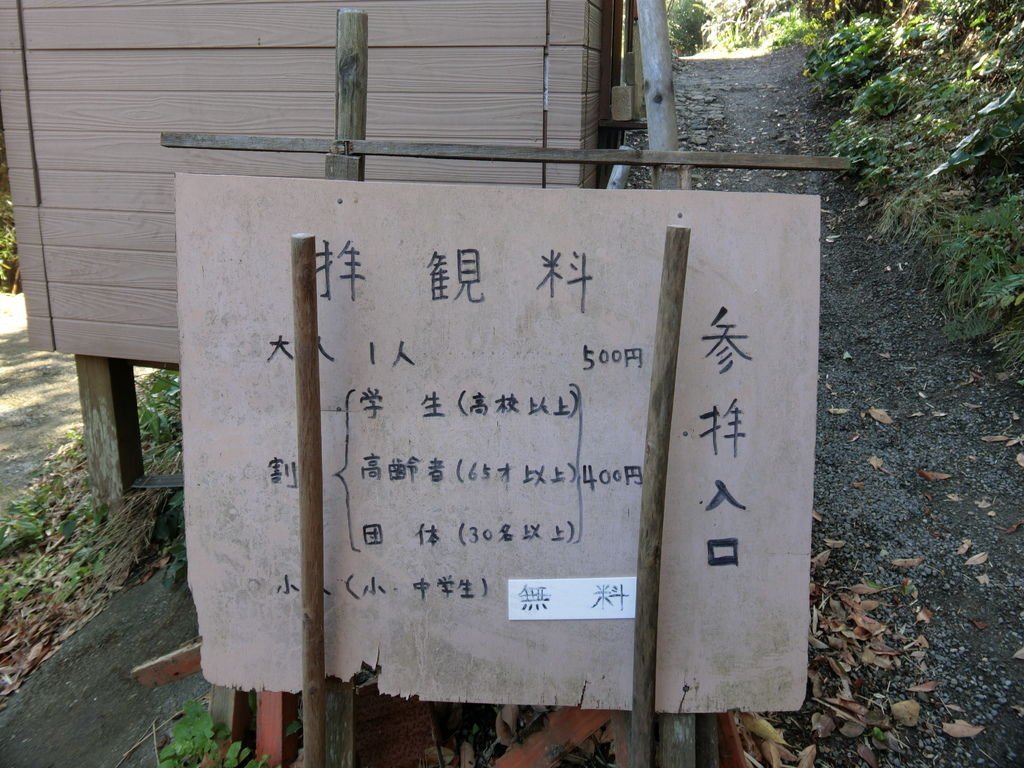 拝観料
大人 1人 500円
学生(高校以上)
割 高齢者(65才以上) 400円
団体(30名以上)
小人(小・中学生) 無料
参拝入口